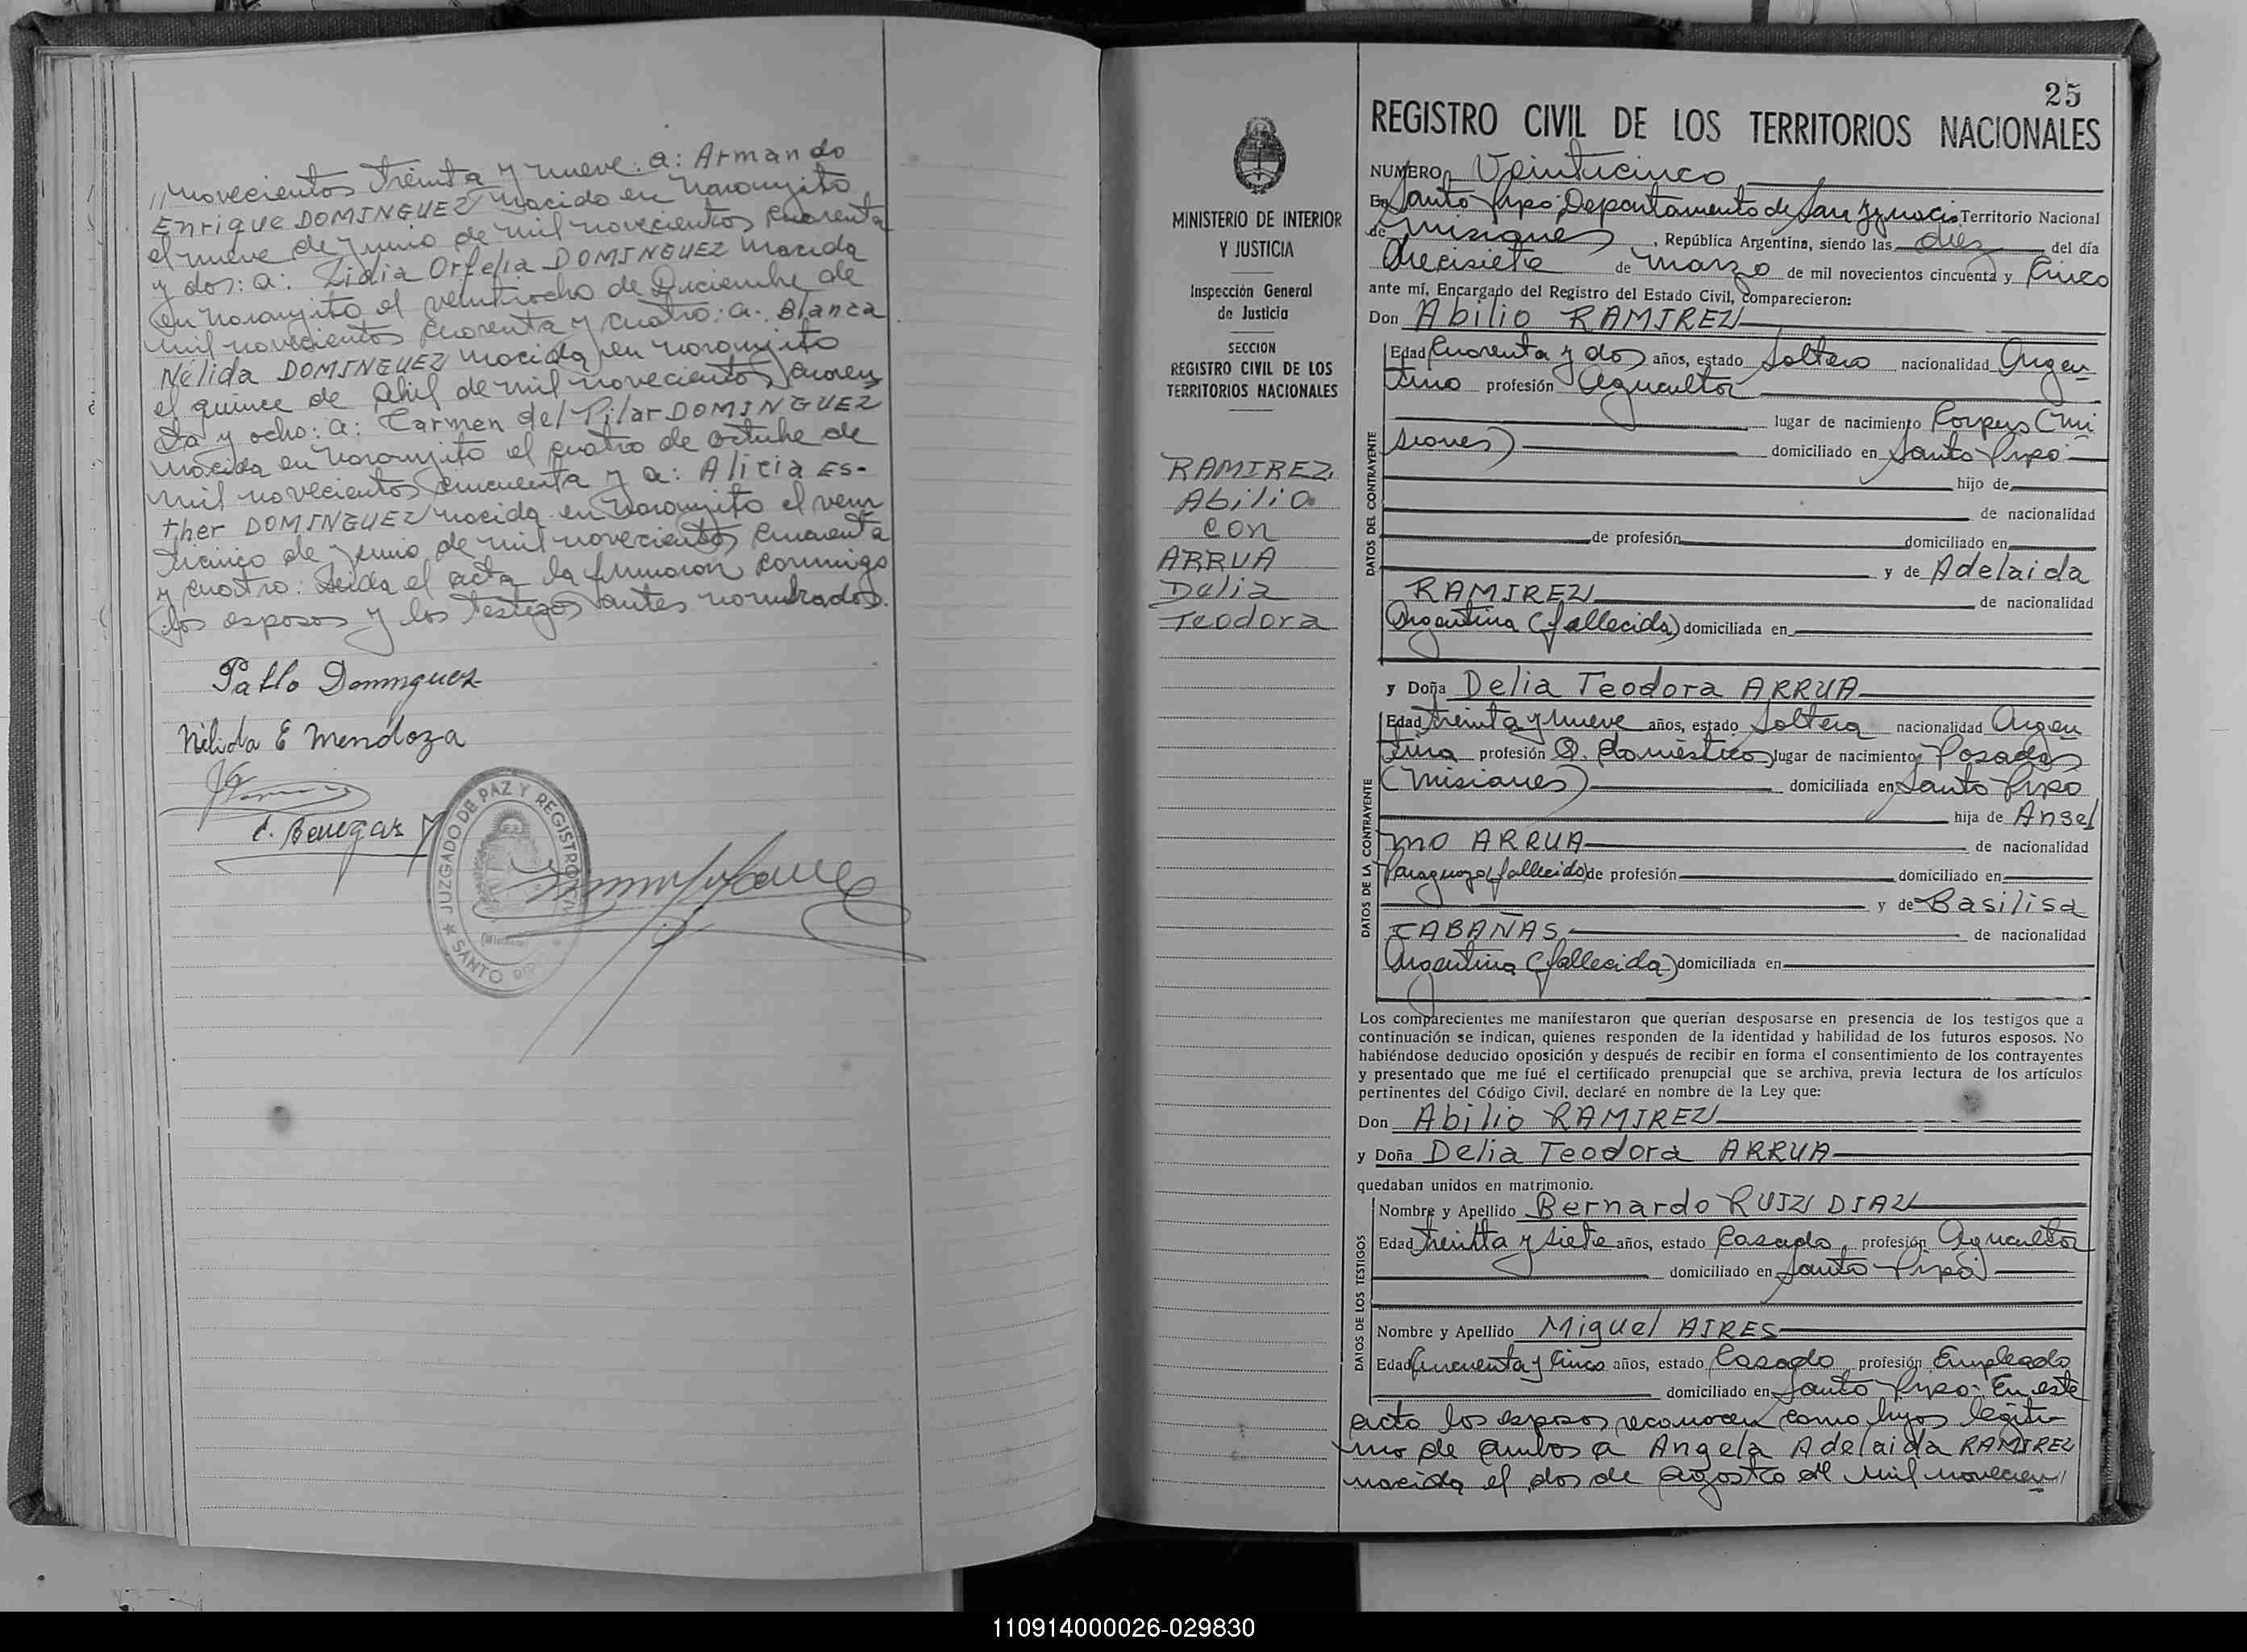 // novecientos treinta y nueve: a: Armando
Enrique DOMINGUEZ nacido en Naranjito
el nueve de Junio de mil novecientos cuarenta
y dos: a: Lidia Orfelia DOMINGUEZ nacida
en Naranjito el veintiocho de Diciembre de
mil novecientos cuarenta y cuatro: a: Blanca
Nélida DOMINGUEZ nacida en Naranjito
el quince de Abril de mil novecientos cuaren
ta y ocho: a: Carmen del Pilar DOMINGUEZ
nacida en Naranjito el cuatro de Octubre de
mil novecientos cincuenta y a: Alicia Es-
ther DOMINGUEZ nacida en Naranjito el vein
ticinco de Junio de mil novecientos cincuenta
y cuatro: Leida el acta la firmaron conmigo
los esposos y los testigos antes nombrados.
Pablo Dominguez
Nélida E Mendoza
C. Benegas
★ JUZGADO DE PAZ Y REGISTRO
SANTO PIPO
25
MINISTERIO DE INTERIOR
Y JUSTICIA
Inspección General
de Justicia
SECCION
REGISTRO CIVIL DE LOS
TERRITORIOS NACIONALES
RAMIREZ
Abilio
con
ARRUA
Delia
Teodora
REGISTRO CIVIL DE LOS TERRITORIOS NACIONALES
NUMERO Veinticinco
En Santo Pipo; Departamento de San Ignacio Territorio Nacional
de Misiones, República Argentina, siendo las diez del día
Diecisiete de Marzo de mil novecientos cincuenta y Cinco
ante mí, Encargado del Registro del Estado Civil, comparecieron:
Don Abilio RAMIREZ
DATOS DEL CONTRAYENTE
Edad Cuarenta y dos años, estado Soltero nacionalidad Argen
tino profesión Agricultor
lugar de nacimiento Corpus (Mi
siones) domiciliado en Santo Pipo
hijo de
de nacionalidad
de profesión domiciliado en
y de Adelaida
RAMIREZ de nacionalidad
Argentina (fallecida) domiciliada en
y Doña Delia Teodora ARRUA
DATOS DE LA CONTRAYENTE
Edad treinta y nueve años, estado Soltera nacionalidad Argen
tina profesión Q. domésticos lugar de nacimiento Posadas
(Misiones) domiciliada en Santo Pipo
hija de Ansel
mo ARRUA de nacionalidad
Paraguayo (fallecido) de profesión domiciliado en
y de Basilisa
CABAÑAS de nacionalidad
Argentina (fallecida) domiciliada en
Los comparecientes me manifestaron que querían desposarse en presencia de los testigos que a
continuación se indican, quienes responden de la identidad y habilidad de los futuros esposos. No
habiéndose deducido oposición y después de recibir en forma el consentimiento de los contrayentes
y presentado que me fué el certificado prenupcial que se archiva, previa lectura de los artículos
pertinentes del Código Civil, declaré en nombre de la Ley que:
Don Abilio RAMIREZ
y Doña Delia Teodora ARRUA
quedaban unidos en matrimonio.
DATOS DE LOS TESTIGOS
Nombre y Apellido Bernardo RUIZ DIAZ
Edad treinta y siete años, estado Casado profesión Agricultor
domiciliado en Santo Pipó
Nombre y Apellido Miguel AIRES
Edad Cincuenta y Cinco años, estado Casado profesión Empleado
domiciliado en Santo Pipo. En este
acto los esposos reconocen como hijos legíti-
mo de ambos a Angela Adelaida RAMIREZ
nacida el dos de Agosto de mil novecien//
110914000026-029830